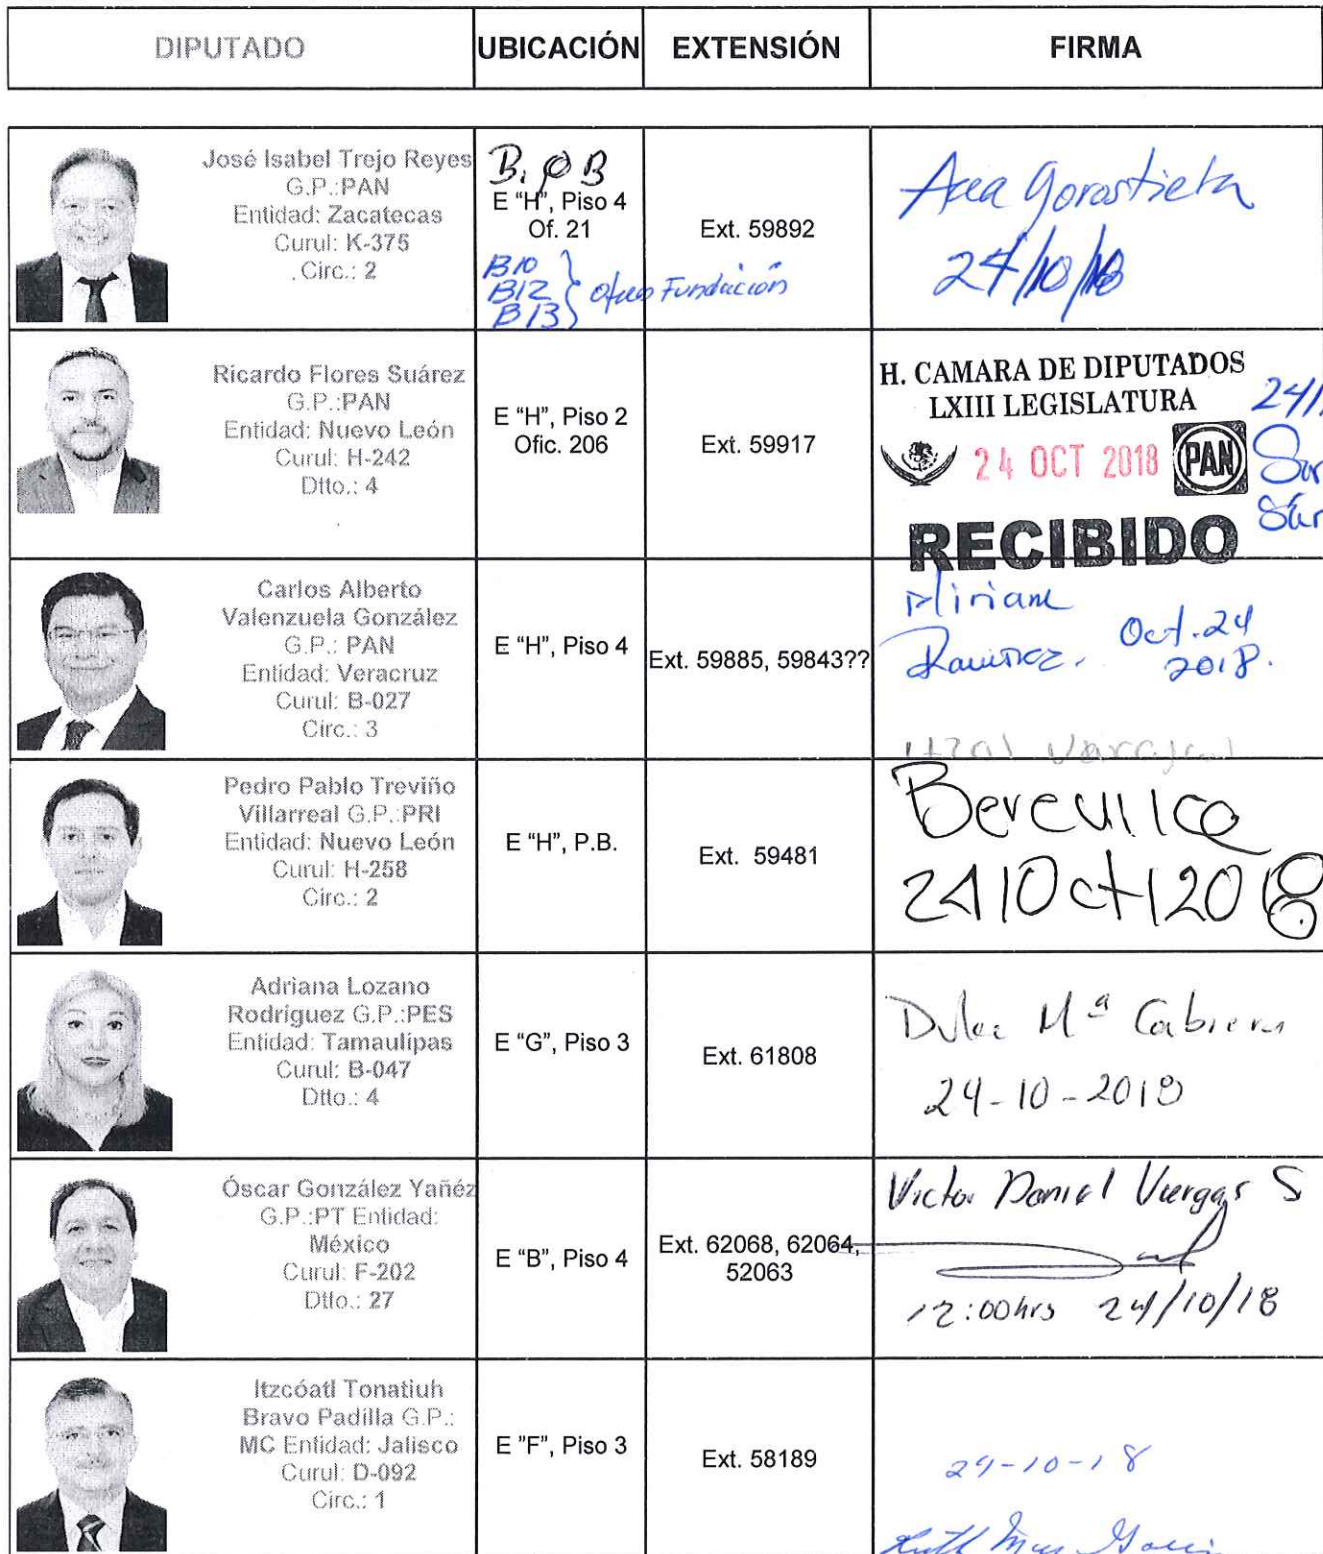 DIPUTADO UBICACIÓN EXTENSIÓN FIRMA
José Isabel Trejo Reyes
G.P.:PAN
Entidad: Zacatecas
Curul: K-375
Circ.: 2
E "H", Piso 4
Of. 21
B10
B12
B13
Fundación
Ext. 59892
Gorostieta
24/10/18
Ricardo Flores Suárez
G.P.:PAN
Entidad: Nuevo León
Curul: H-242
Dtto.: 4
E "H", Piso 2
Ofic. 206
Ext. 59917
H. CAMARA DE DIPUTADOS
LXIII LEGISLATURA
24 OCT 2018
PAN
RECIBIDO
24/
Carlos Alberto
Valenzuela González
G.P.: PAN
Entidad: Veracruz
Curul: B-027
Circ.: 3
E "H", Piso 4
Ext. 59885, 59843??
Miriam
Ramírez. Oct. 24
2018.
Pedro Pablo Treviño
Villarreal G.P.:PRI
Entidad: Nuevo León
Curul: H-258
Circ.: 2
E "H", P.B.
Ext. 59481
Berenice
24/Oct/2018
Adriana Lozano
Rodríguez G.P.:PES
Entidad: Tamaulipas
Curul: B-047
Dtto.: 4
E "G", Piso 3
Ext. 61808
Dulce Mª Cabrera
24-10-2018
Óscar González Yañéz
G.P.:PT Entidad:
México
Curul: F-202
Dtto.: 27
E "B", Piso 4
Ext. 62068, 62064,
52063
Victor Daniel Vargas S
12:00hrs 24/10/18
Itzcóatl Tonatiuh
Bravo Padilla G.P.:
MC Entidad: Jalisco
Curul: D-092
Circ.: 1
E "F", Piso 3
Ext. 58189
24-10-18